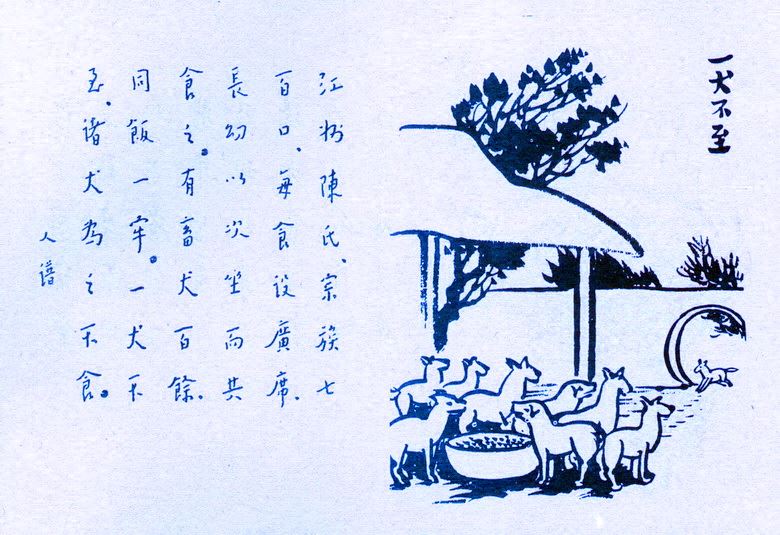 一犬不至
江州陳氏、宗族七
百口、每食设廣席、
長幼以次坐而共
食之。有畜犬百餘、
同飯一牢。一犬不
至、诸犬為之不食。
人谱